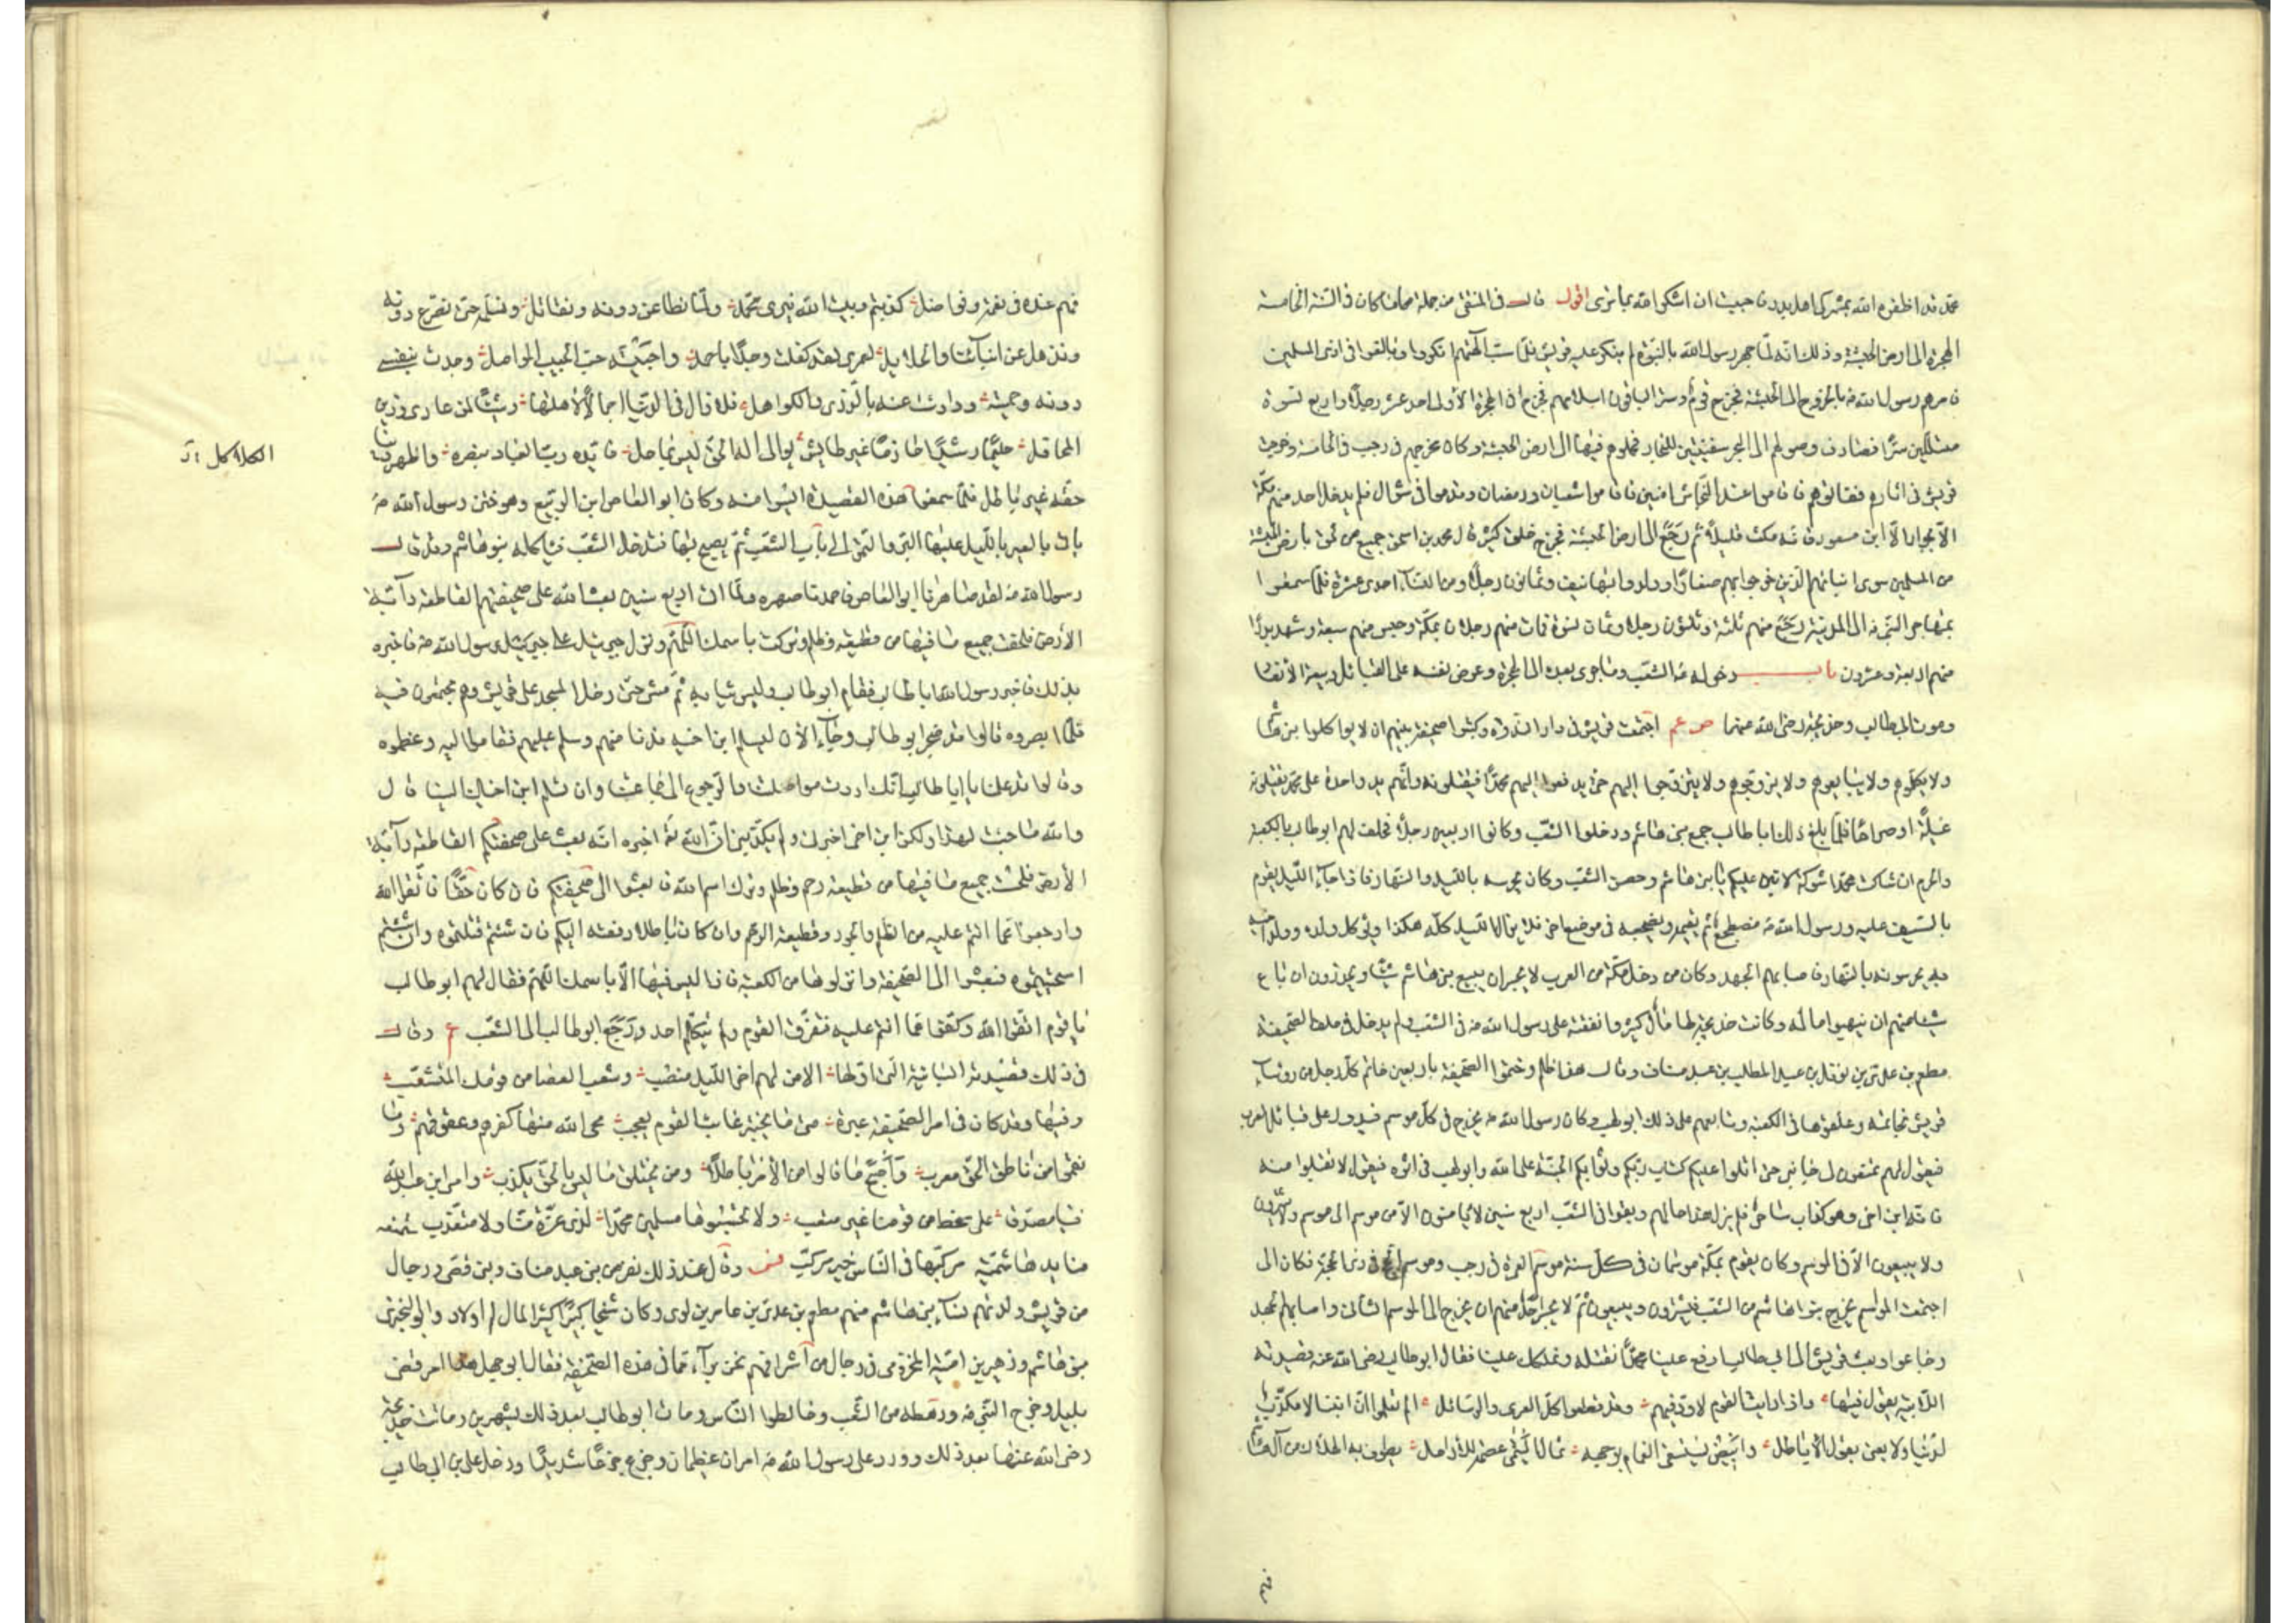 محمد قد اظفره الله بمشركى اهل بدر فاحببت ان اشكر الله بما ترى اقول قال فى المنتقى من جملة ما كان فى السنة الخامسة
الهجرة الى ارض الحبشة وذلك انه لما جهر رسول الله بالنبوة لم ينكر عليه قريش فلما سب الهتهم انكروا وبالغوا فى اذى المسلمين
فامرهم رسول الله ص بالخروج الى الحبشة فخرج قوم وستر الباقون اسلامهم فخرج فى الهجرة الاولى احد عشر رجلا واربع نسوة
متسللين سرا فصادف وصولهم الى البحر سفينتين للتجار فحملوهم فيها الى ارض الحبشة وكان مخرجهم فى رجب فى الخامسة وخرجت
قريش فى اثارهم ففاتوهم فاقاموا عند النجاشى امنين فاقاموا شعبان ورمضان وقدموا فى شوال فلم يدخل احد منهم مكة
الا بجوار الا ابن مسعود فانه مكث قليلا ثم رجع الى ارض الحبشة فخرج خلق كثير قال محمد بن اسحق جميع من لحق بارض الحبشة
من المسلمين سوى ابنائهم الذين خرجوا بهم صغارا وولدوا بها نيف وثمانون رجلا ومن النساء احدى عشرة فلما سمعوا
بمهاجر النبى ص الى المدينة رجع منهم ثلثة وثلثون رجلا وثمان نسوة فمات منهم رجلان بمكة وحبس منهم سبعة وشهد بدرا
منهم اربعة وعشرون باب دخوله ص الشعب وما جرى بعده الى الهجرة وعرض نفسه على القبائل وبيعة الأنصار
وموت ابى طالب وخديجة رضى الله عنهما ص عم اجتمعت قريش فى دار الندوة وكتبوا صحيفة بينهم ان لا يواكلوا بنى هاشم
ولا يكلموهم ولا يبايعوهم ولا يزوجوهم ولا يتزوجوا اليهم حتى يدفعوا اليهم محمدا فيقتلونه وانهم يد واحدة على محمد يقتلونه
غيلة او صراحا فلما بلغ ذلك ابا طالب جمع بنى هاشم ودخلوا الشعب وكانوا اربعين رجلا فحلف لهم ابو طالب بالكعبة
والحرم ان شاكت محمدا شوكة لاتين عليكم يا بنى هاشم وحصن الشعب وكان يحرسه بالليل والنهار فاذا جاء الليل يقوم
بالسيف عليه ورسول الله ص مضطجع ثم يقيمه ويضجعه فى موضع اخر فلا يزال الليل كله هكذا ويوكل ولده وولد اخيه
به يحرسونه بالنهار فاصابهم الجهد وكان من دخل مكة من العرب لا يجسر ان يبيع بنى هاشم شيئا ويحذرون ان باع
شيئا منهم ان ينهبوا ماله وكانت خديجة لها مال كثير فانفقته على رسول الله ص فى الشعب ولم يدخل فى حلف الصحيفة
مطعم بن عدى بن نوفل بن عبد المطلب بن عبد مناف وقال هذا ظلم وختموا الصحيفة باربعين خاتم كل رجل من رؤساء
قريش بخاتمه وعلقوها فى الكعبة وتابعهم على ذلك ابو لهب وكان رسول الله ص يخرج فى كل موسم فيدور على قبائل العرب
فيقول لهم تمنعون لى جانبى حتى اتلوا عليكم كتاب ربكم وثوابكم الجنة على الله وابو لهب فى اثره فيقول لا تقبلوا منه
فانه ابن اخى وهو كذاب ساحر فلم يزل هذا حالهم وبقوا فى الشعب اربع سنين لا يامنون الا من موسم الى موسم ولا يشترون
ولا يبيعون الا فى الموسم وكان يقوم بمكة موسمان فى كل سنة موسم العمرة فى رجب وموسم الحج فى ذى الحجة فكان اذا
اجتمعت المواسم يخرج بنوا هاشم من الشعب فيشترون ويبيعون ثم لا يجسر احد منهم ان يخرج الى الموسم الثانى واصابهم الجهد
وجاعوا وبعث قريش الى ابى طالب ادفع الينا محمدا نقتله ونملكك علينا فقال ابو طالب رضى الله عنه قصيدته
اللامية يقول فيها واذا رايت القوم لا ود فيهم وقد قطعوا كل العرى والوسائل الم تعلموا ان ابننا لا مكذب
لدينا ولا يعنى بقول الأباطل وابيض يستسقى الغمام بوجهه ثمال اليتامى عصمة للأرامل يطوف به الهلاك من آل هاشم
فهم عنده فى نعمة وفواضل كذبتم وبيت الله نبرى محمدا ولما نطاعن دونه ونقاتل ونسلمه حتى نصرع دونه
ونذهل عن ابنائنا والحلائل لعمرى لقد كلفت وجدا باحمد واحببته حب الحبيب المواصل وجدت بنفسى
دونه وحميته ودارات عنه بالذرى والكواهل فلا زال فى الدنيا جمالا لأهلها وشينا لمن عادى وزين
المحافل حليما رشيدا حازما غير طايش يوالى اله الحق ليس بماحل فايده رب العباد بنصره واظهر دينا
حقه غير باطل فلما سمعوا هذه القصيدة ايسوا منه وكان ابو العاص ابن الربيع وهو ختن رسول الله ص
ياتى بالعير بالليل عليها البر والتمر الى باب الشعب ثم يصيح بها فتدخل الشعب فياكله بنو هاشم وقد قال
رسول الله ص لقد صاهرنا ابو العاص فاحمدنا صهره ولما اتى اربع سنين بعث الله على صحيفتهم القاطعة دابة
الأرض فلحست جميع ما فيها من قطيعة وظلم وتركت باسمك اللهم ونزل جبرئيل على رسول الله ص فاخبره
بذلك فاخبر رسول الله ابا طالب فقام ابو طالب ولبس ثيابه ثم مشى حتى دخل المسجد على قريش وهم مجتمعون فيه
فلما ابصروه قالوا قد ضجر ابو طالب وجاء الأن ليسلم ابن اخيه فدنا منهم وسلم عليهم فقاموا اليه وعظموه
وقالوا قد علمنا يا ابا طالب انك اردت مواصلتنا والرجوع الى جماعتنا وان تسلم ابن اخيك الينا قال
والله ما جئت لهذا ولكن ابن اخى اخبرنى ولم يكذبنى ان الله تعالى اخبره انه بعث على صحيفتكم القاطعة دابة
الأرض فلحست جميع ما فيها من قطيعة رحم وظلم وترك اسم الله فابعثوا الى صحيفتكم فان كان حقا فاتقوا الله
وارجعوا عما انتم عليه من الظلم والجور وقطيعة الرحم وان كان باطلا دفعته اليكم فان شئتم قتلتموه وان شئتم
استحييتموه فبعثوا الى الصحيفة وانزلوها من الكعبة فاذا ليس فيها الا باسمك اللهم فقال لهم ابو طالب
يا قوم اتقوا الله وكفوا عما انتم عليه فتفرق القوم ولم يتكلم احد ورجع ابو طالب الى الشعب عم وقال
فى ذلك قصيدته البائية التى اولها الا من لهم اخر الليل منصب وشعب العصا من قومك المتشعب
وفيها وقد كان فى امر الصحيفة عبرة متى ما يخبر غائب القوم يعجب محى الله منها كفرهم وعقوقهم وما
نقموا من ناطق الحق معرب واصبح ما قالوا من الأمر باطلا ومن يختلق ما ليس بالحق يكذب وامسى ابن عبد الله
فينا مصدقا على سخط من قومنا غير معتب ولا تحسبونا مسلمين محمدا لذى عزة منا ولا متعزب ستمنعه
منا يد هاشمية مركبها فى الناس خير مركب وقال عند ذلك نفر من بنى عبد مناف وبنى قصى ورجال
من قريش ولدتهم نساء بنى هاشم منهم مطعم بن عدى بن عامر بن لوى وكان شيخا كبيرا كثير المال له اولاد وابو البخترى
بن هاشم وزهير بن امية المخزومى فى رجال من اشرافهم نحن براء مما فى هذه الصحيفة فقال ابو جهل هذا امر قضى
بليل وخرج النبى ص ورهطه من الشعب وخالطوا الناس ومات ابو طالب بعد ذلك بشهرين وماتت خديجة
رضى الله عنها بعد ذلك وورد على رسول الله ص امران عظيمان وجزع جزعا شديدا ودخل على بن ابى طالب